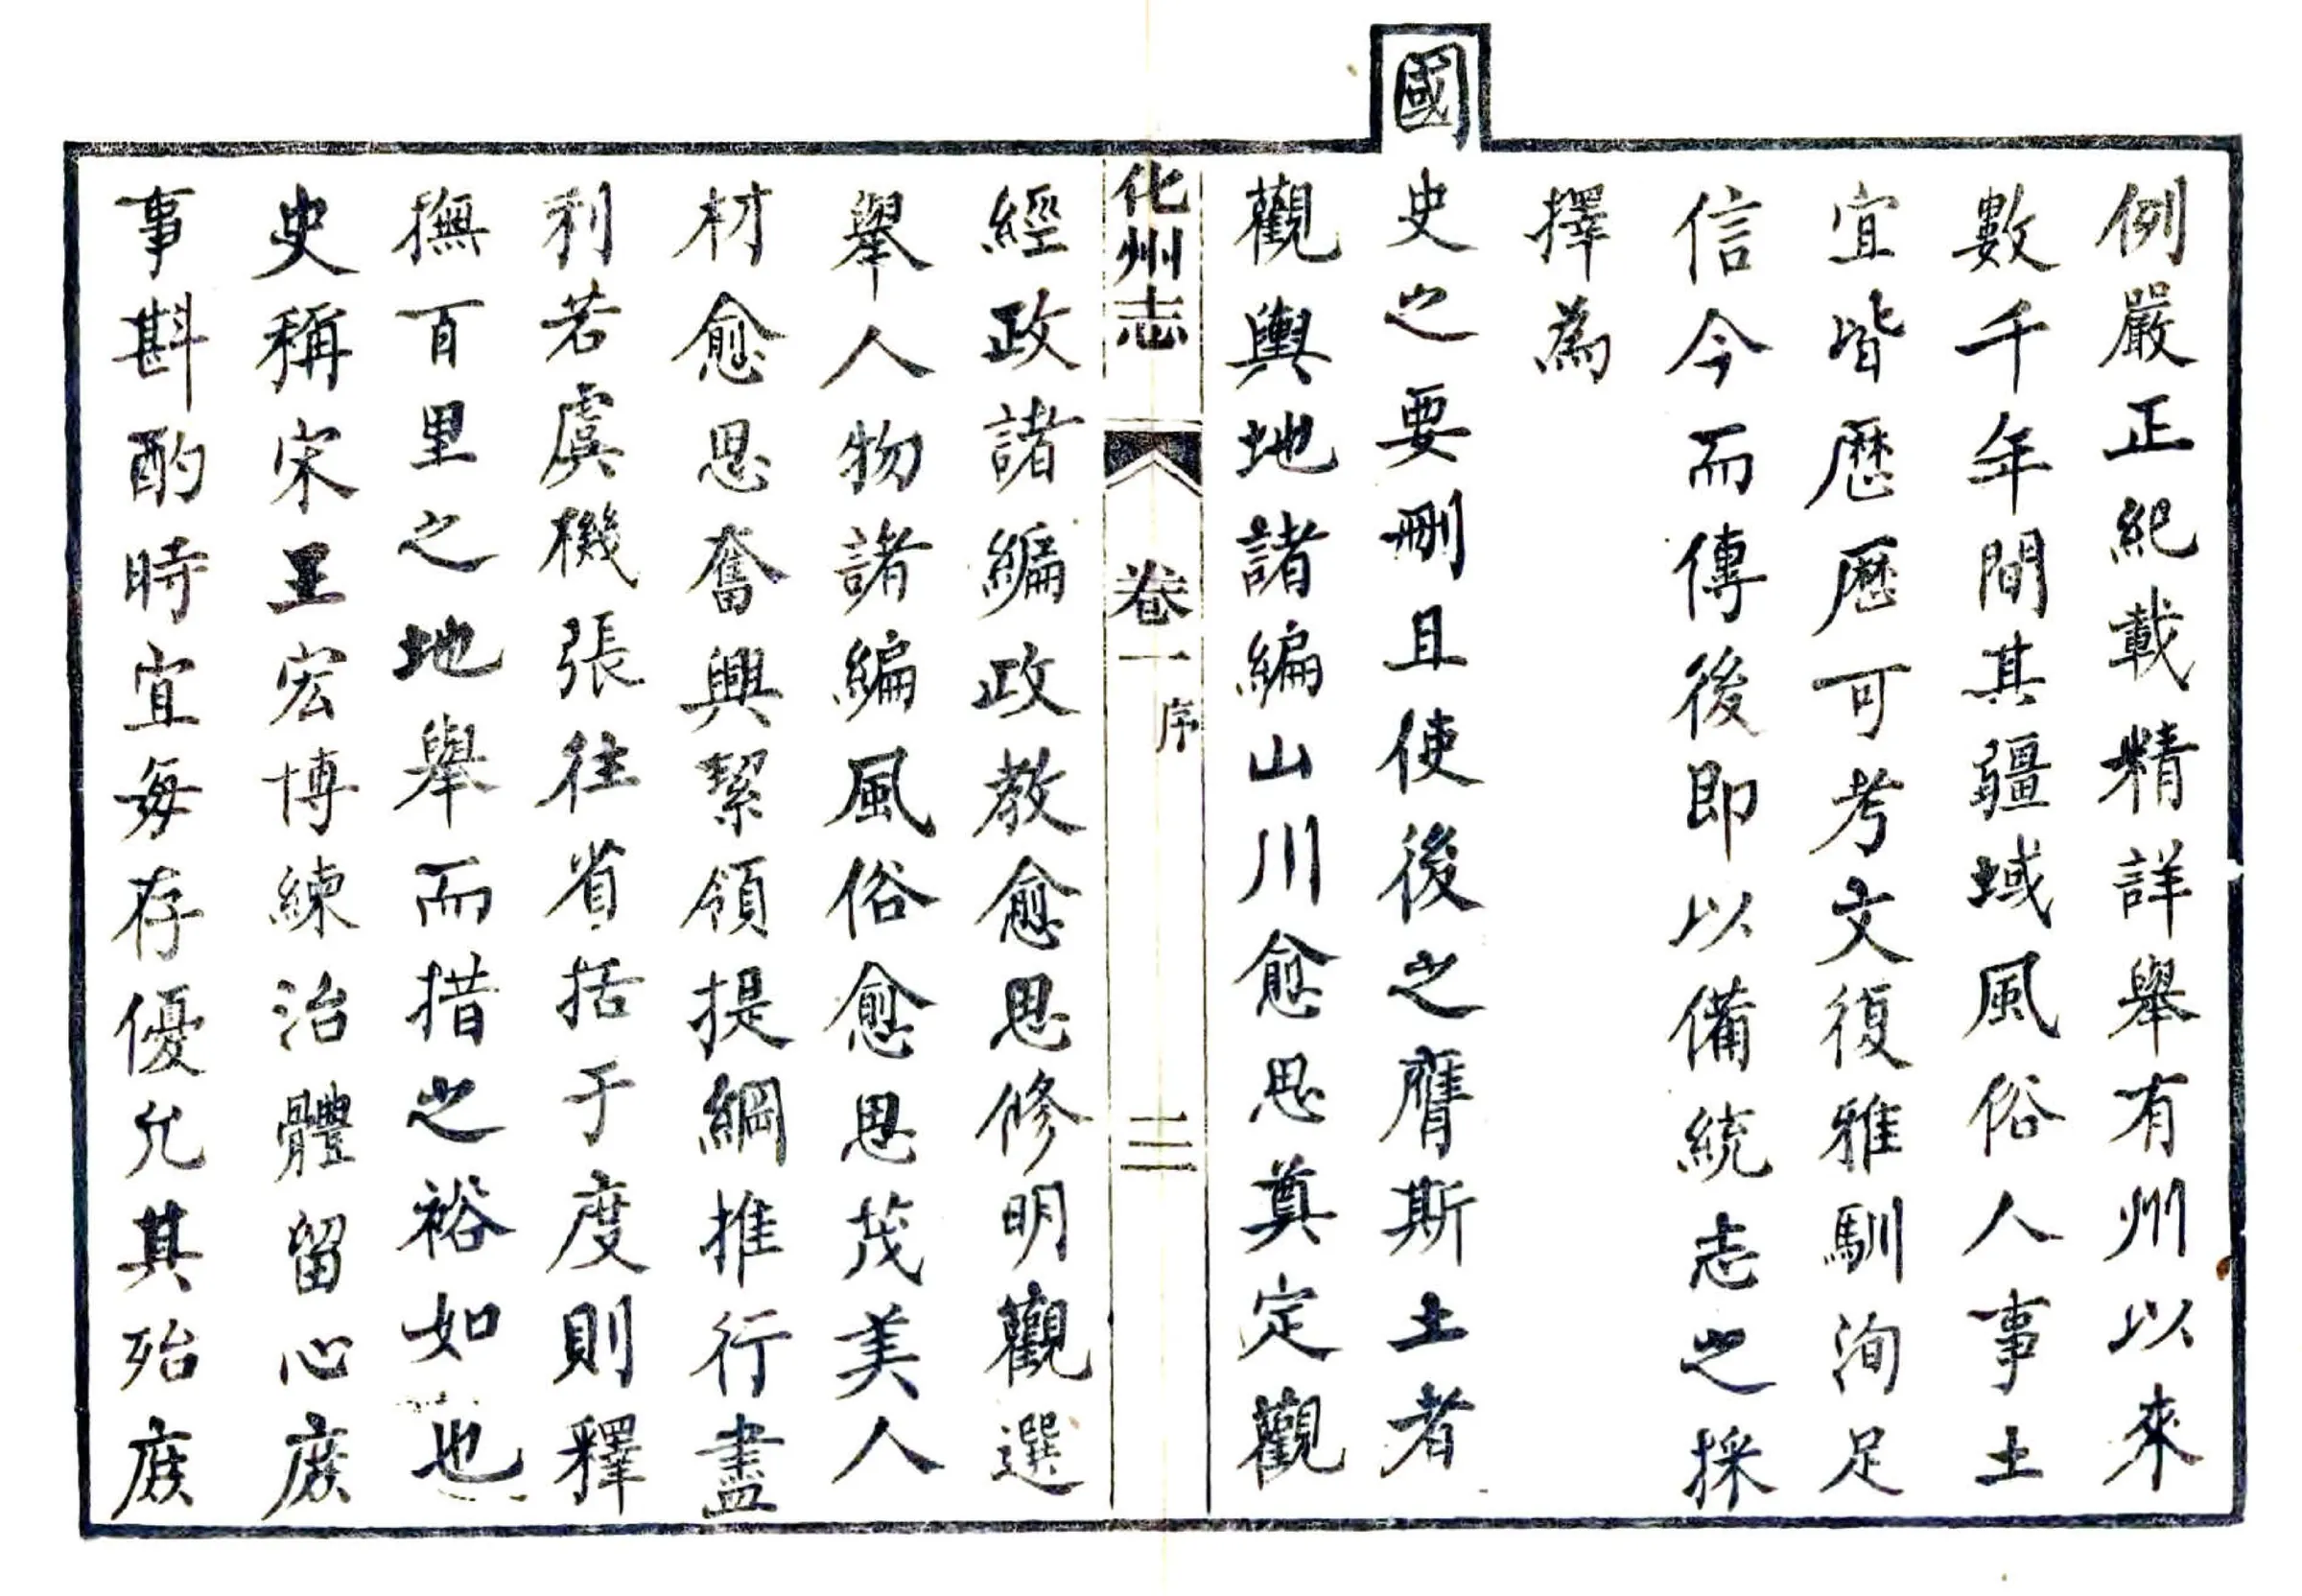 例嚴正紀載精詳舉有州以來
數千年間其疆域風俗人事土
宜皆歷歷可考文復雅馴洵足
信今而傳後即以備統志之採
擇為
國史之要刪且使後之膺斯土者
觀輿地諸編山川愈思奠定觀
化州志 卷一 序 三
經政諸編政教愈思修明觀選
舉人物諸編風俗愈思茂美人
材愈思奮興絜領提綱推行盡
利若虞機張往省括于度則釋
撫百里之地舉而措之裕如也
史稱宋王宏博練治體留心庶
事斟酌時宜每存優允其殆庶